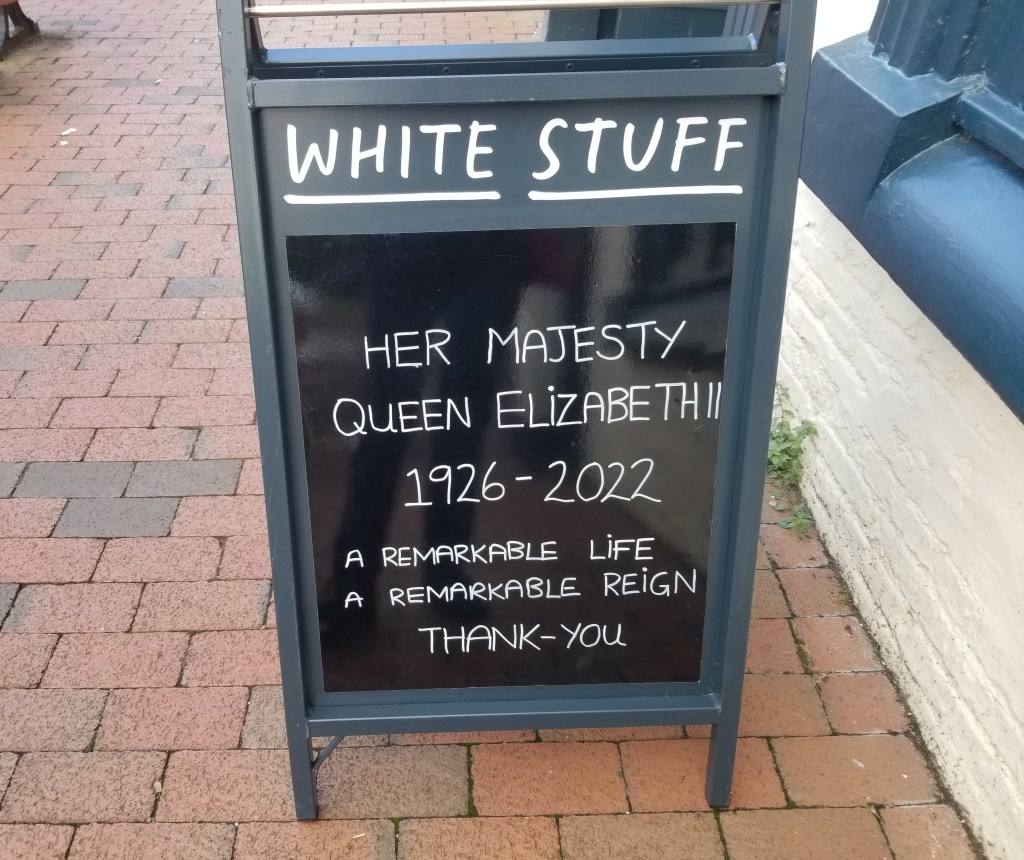 WHITE STUFF
HER MAJESTY
QUEEN ELIZABETH II
1926-2022
A REMARKABLE LIFE
A REMARKABLE REIGN
THANK-YOU